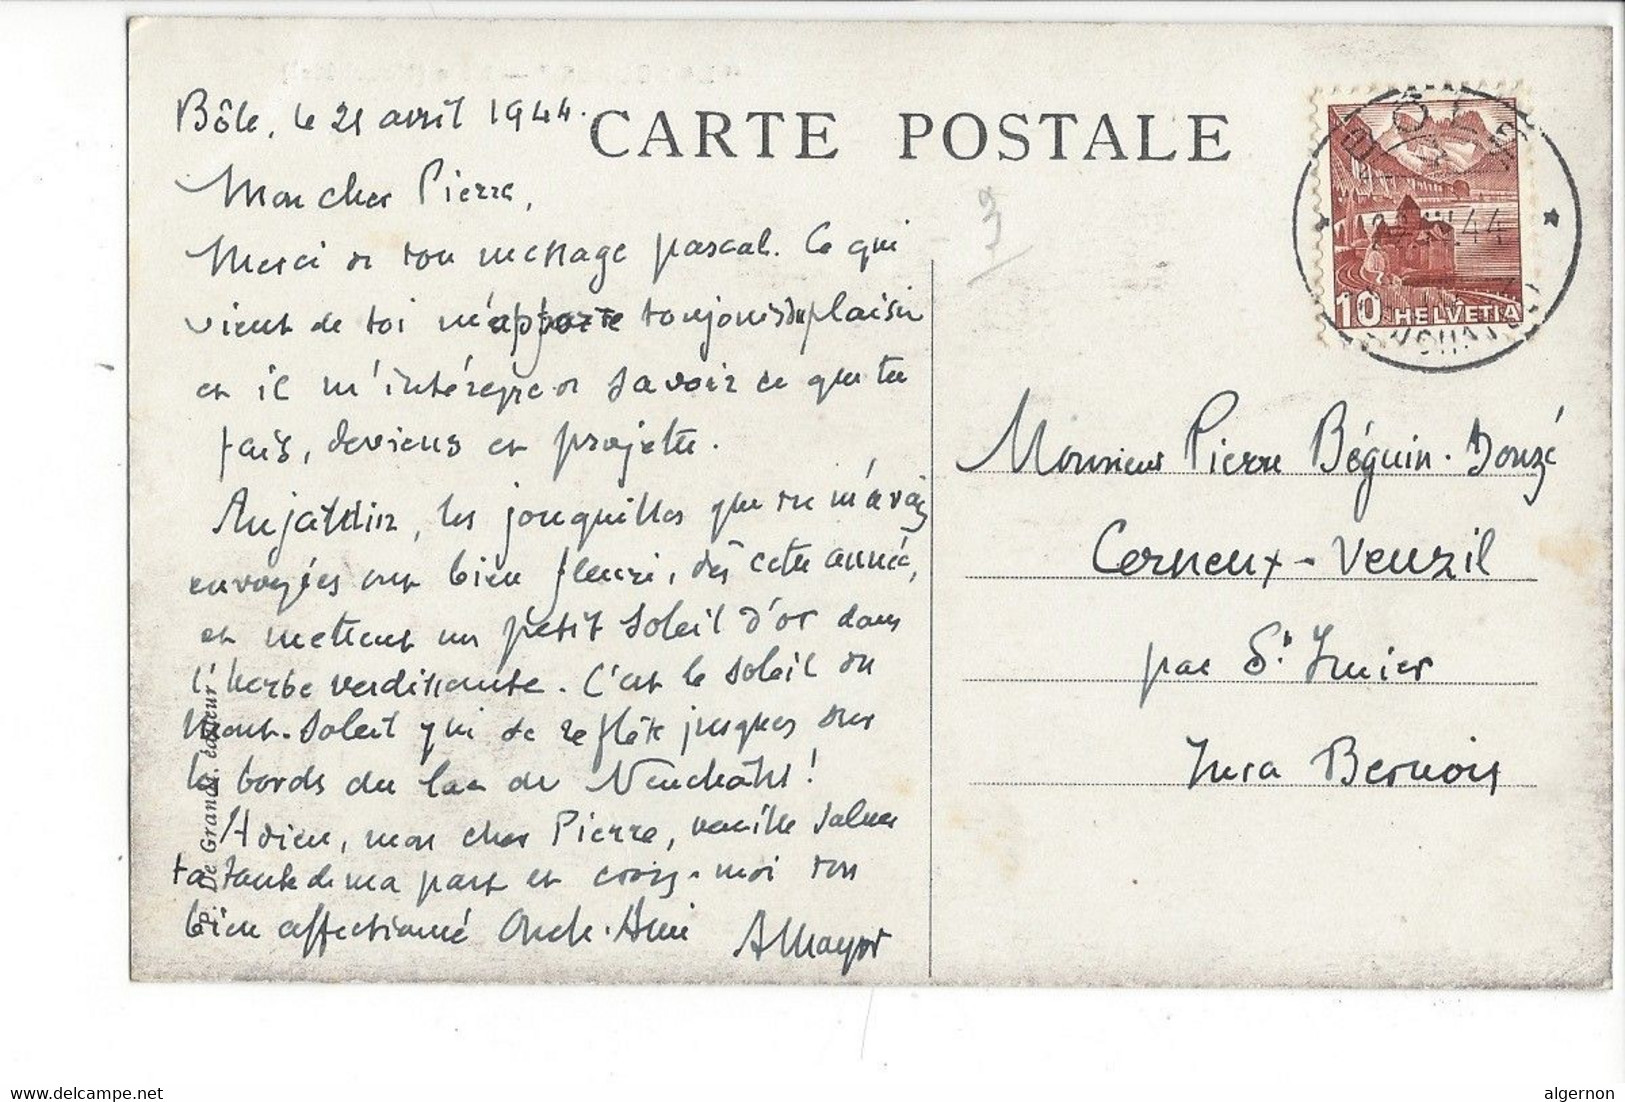 CARTE POSTALE
Bôle, le 21 avril 1944.
Mon cher Pierre,
Merci de ton message pascal. Ce qui
vient de toi m'apporte toujours du plaisir
et il m'intéresse de savoir ce que tu
fais, deviens et projette.
Au jardin, les jonquilles que tu m'avais
envoyées ont bien fleuri, dès cette année,
et mettent un petit soleil d'or dans
l'herbe verdissante. C'est le soleil du
Mont-Soleil qui se reflète jusques sur
les bords du lac de Neuchâtel !
Adieu, mon cher Pierre, veuille saluer
ta tante de ma part et crois-moi ton
bien affectionné Oncle-Ami
AMayor
P. De Grandi, éditeur
3
10 HELVETIA
BÔLE
44
Monsieur Pierre Béguin-Donzé
Cerneux-Veusil
par St. Imier
Jura Bernois
www.delcampe.net
algernon